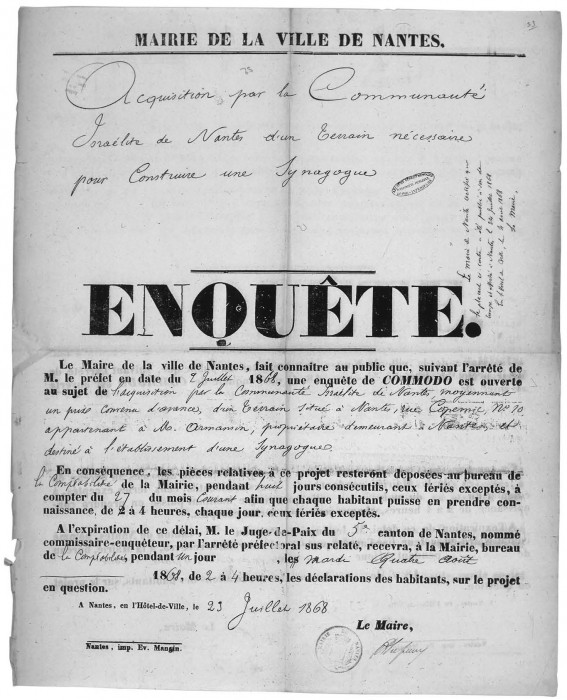 MAIRIE DE LA VILLE DE NANTES.
Acquisition par la Communauté
Israélite de Nantes d'un Terrain nécessaire
pour Construire une Synagogue
Le maire de Nantes certifie que
le placard ci contre a été publié à son de
Nantes le 26 juillet 1868
Le Maire,
ENQUÊTE.
Le Maire de la ville de Nantes, fait connaître au public que, suivant l'arrêté de
M. le préfet en date du 2 Juillet 1868, une enquête de COMMODO est ouverte
au sujet de l'acquisition par la Communauté Israélite de Nantes, moyennant
un prix convenu d'avance, d'un Terrain situé à Nantes, rue Copernic No 10
appartenant à Mr. Ormansin, propriétaire demeurant à Nantes, et
destiné à l'établissement d'une Synagogue.
En conséquence, les pièces relatives à ce projet resteront déposées au bureau de
la Comptabilité de la Mairie, pendant huit jours consécutifs, ceux fériés exceptés, à
compter du 27 du mois Courant afin que chaque habitant puisse en prendre con-
naissance, de 2 à 4 heures, chaque jour, ceux fériés exceptés.
A l'expiration de ce délai, M. le Juge-de-Paix du 5e canton de Nantes, nommé
commissaire-enquêteur, par l'arrêté préfectoral sus relaté, recevra, à la Mairie, bureau
de la Comptabilité, pendant un jour, les mardi Quatre août
1868, de 2 à 4 heures, les déclarations des habitants, sur le projet
en question.
A Nantes, en l'Hôtel-de-Ville, le 23 Juillet 1868
Le Maire,
Nantes, imp. Ev. Mangin.